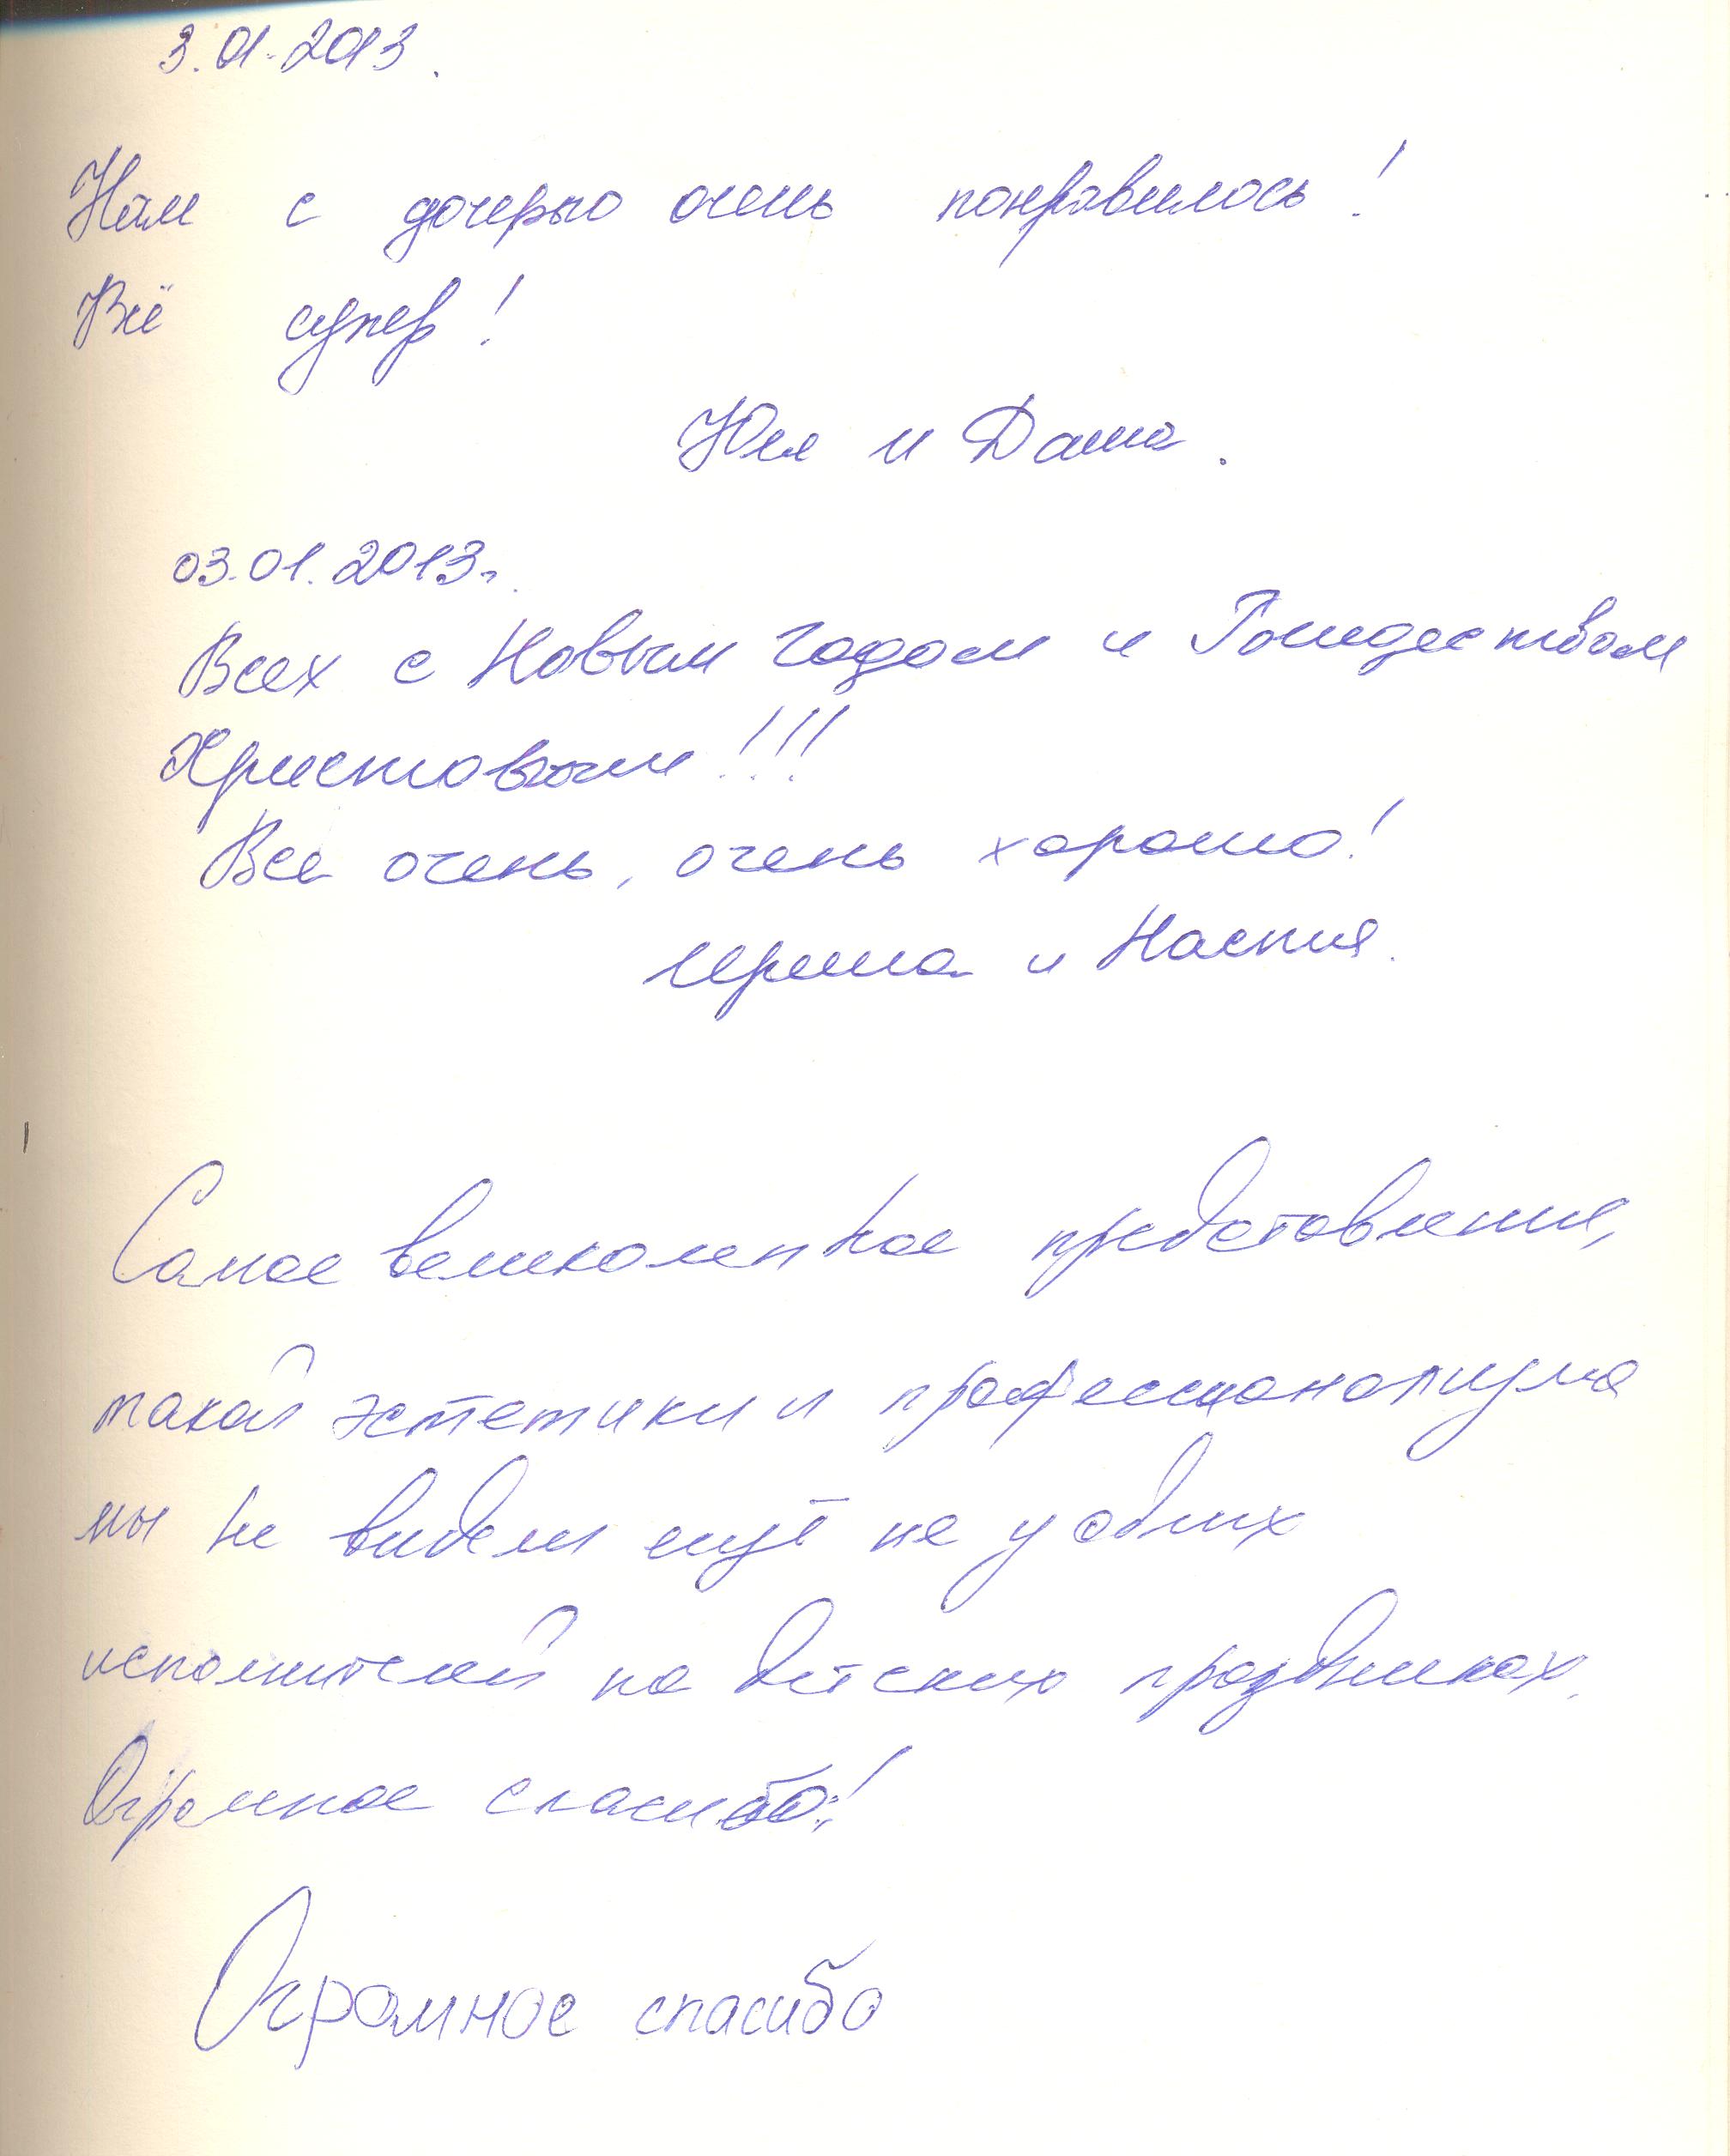 3.01.2013.
Нам с дочерью очень понравилось!
Всё супер!
Юля и Даша.
03.01.2013г.
Всех с Новым годом и Рождеством
Христовым!!!
Все очень, очень хорошо!
Ирина и Настя.
Самое великолепное представление,
такой эстетики и профессионализма
мы не видели ещё не у одних
исполнителей на детских праздниках.
Огромное спасибо!
Огромное спасибо